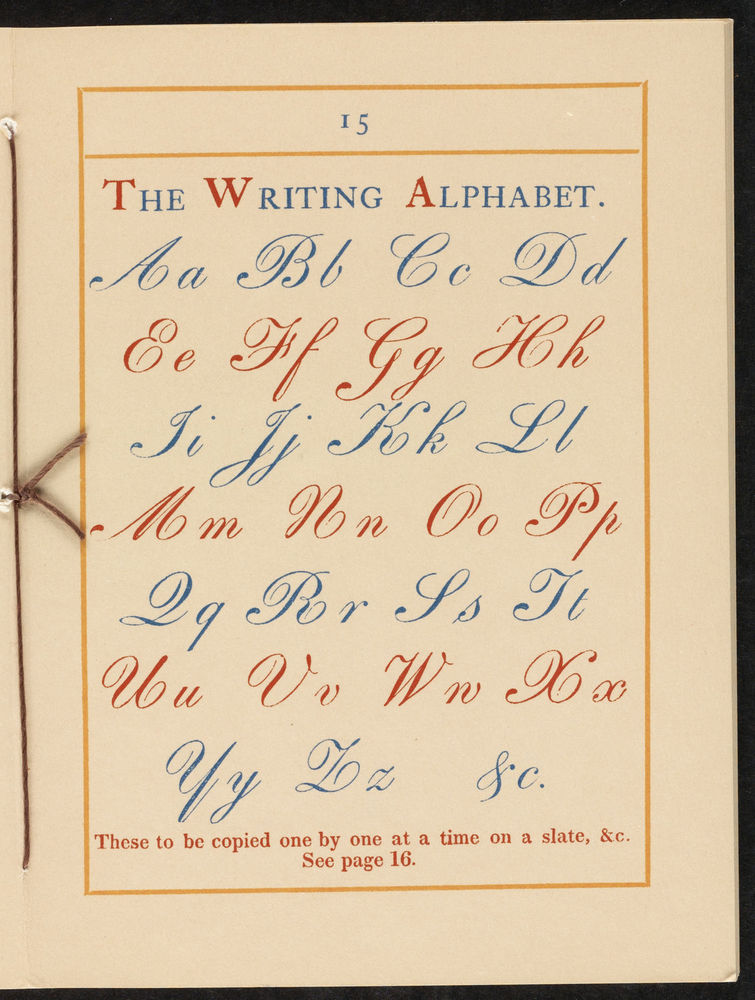 15
THE WRITING ALPHABET.
Aa Bb Cc Dd
Ee Ff Gg Hh
Ii Jj Kk Ll
Mm Nn Oo Pp
Qq Rr Ss Tt
Uu Vv Ww Xx
Yy Zz &c.
These to be copied one by one at a time on a slate, &c.
See page 16.